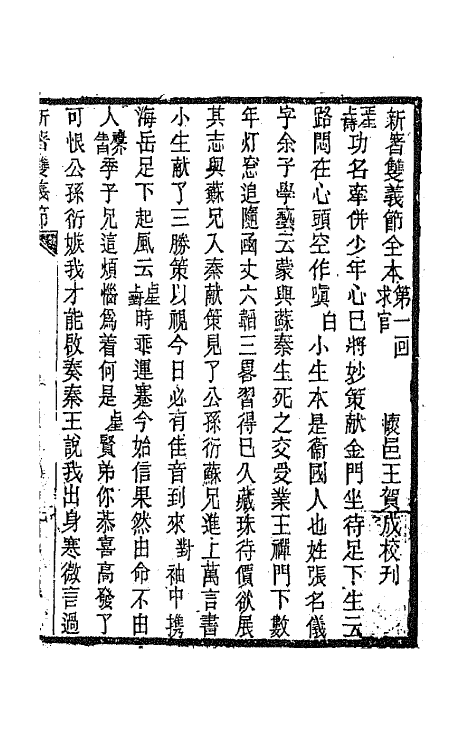 新著雙義節全本第一回求官 懷邑王賀成校刊
生上詩功名牽併少年心已將妙策献金門坐待足下生云
路悶在心頭空作嗔白小生本是衛國人也姓張名儀
字余子學藝云蒙與蘇秦生死之交受業王禪門下數
年灯窓追隨函丈六韜三畧習得已久藏珠待價欲展
其志與蘇兄入秦献策見了公孫衍蘇兄進上萬言書
小生献了三勝策以視今日必有佳音到來對袖中携
海岳足下起風云生上對時乖運蹇今始信果然由命不由
人季子兄這煩惱為着何是生賢弟你恭喜高發了
可恨公孫衍嫉我才能啟奏秦王說我出身寒微言過
新著雙義節